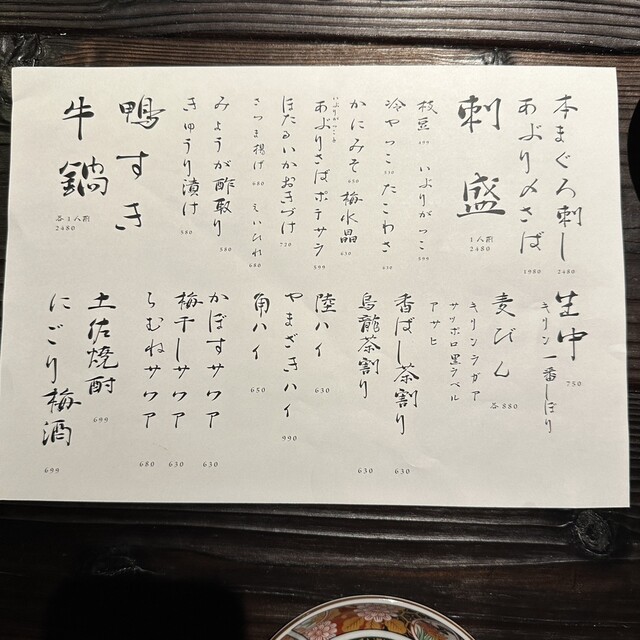 本まぐろ刺し 2480
あぶり〆さば 1980
刺盛 1人前 2480
枝豆 いぶりがっこ 599
冷やっこ 530 たこわさ 530
かにみそ 630 梅水晶 630
いぶりがっこの
あぶりさばポテサラ 599
ほたるいかおきづけ 720
さつま揚げ 680 えいひれ 680
みょうが酢取り 580
きゅうり漬け 580
鴨すき
牛鍋 各1人前 2480
生中 750
キリン一番しぼり
麦びん 各880
キリンラガー
サッポロ黒ラベル
アサヒ
香ばし茶割り 630
烏龍茶割り 630
陸ハイ 630
やまざきハイ 990
角ハイ 650
かぼすサワー 630
梅干しサワー 630
らむねサワー 680
土佐焼酎 699
にごり梅酒 699